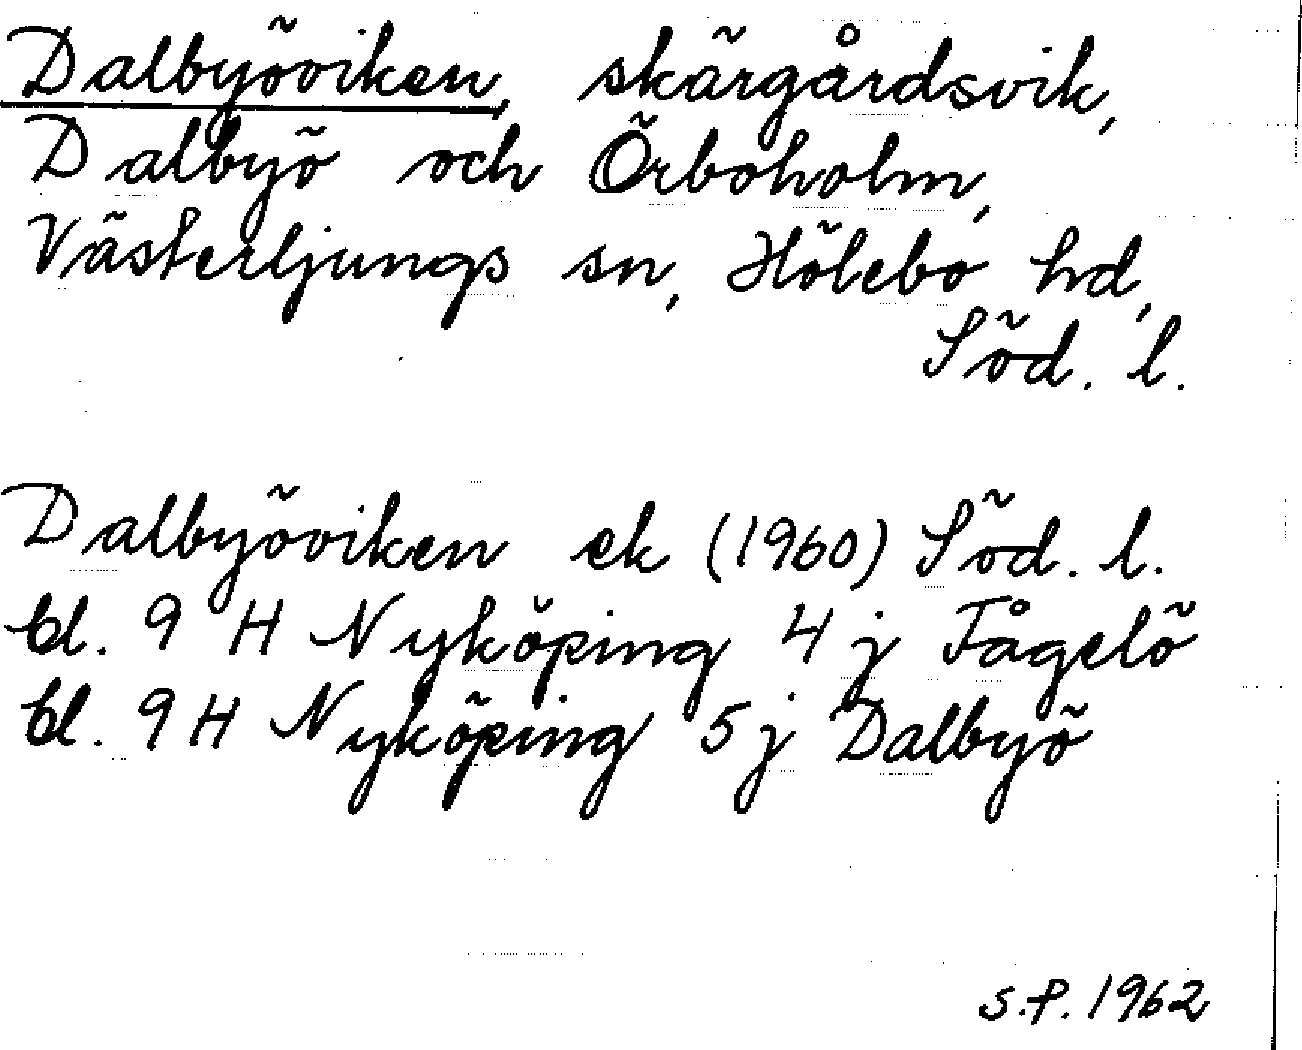 Dalbyöviken, skärgårdsvik,
Dalbyö och Örboholm,
Västerljungs sn, Hölebo hd,
Söd. l.
Dalbyöviken ek (1960) Söd. l.
bl. 9 H Nyköping 4 j Fågelö
bl. 9 H Nyköping 5 j Dalbyö
S.P. 1962